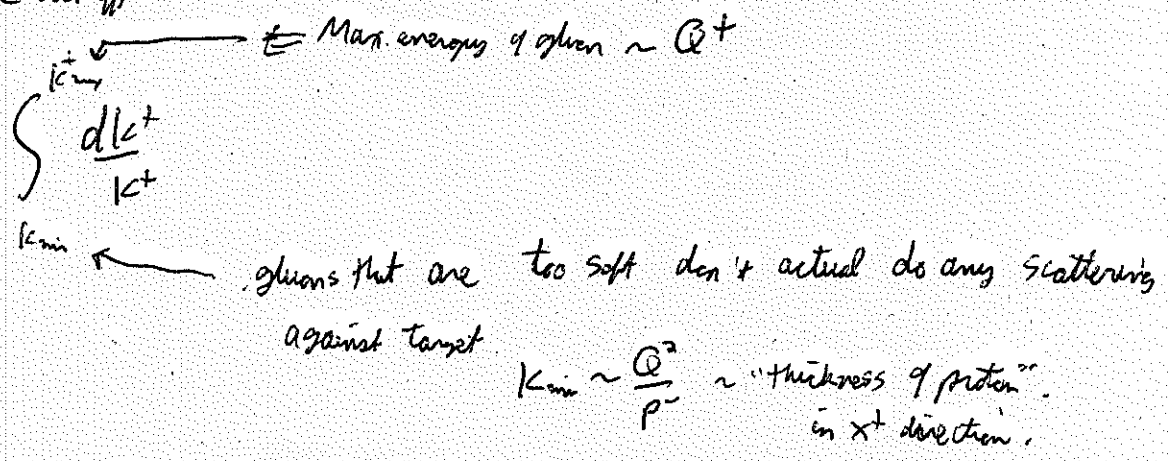 ← Max. energy of gluon ~ Q⁺
k⁺max
∫ dk⁺ / k⁺
kmin
gluons that are too soft don't actual do any scattering
against target.
kmin ~ Q² / P⁻ ~ "thickness of proton".
in x⁺ direction.